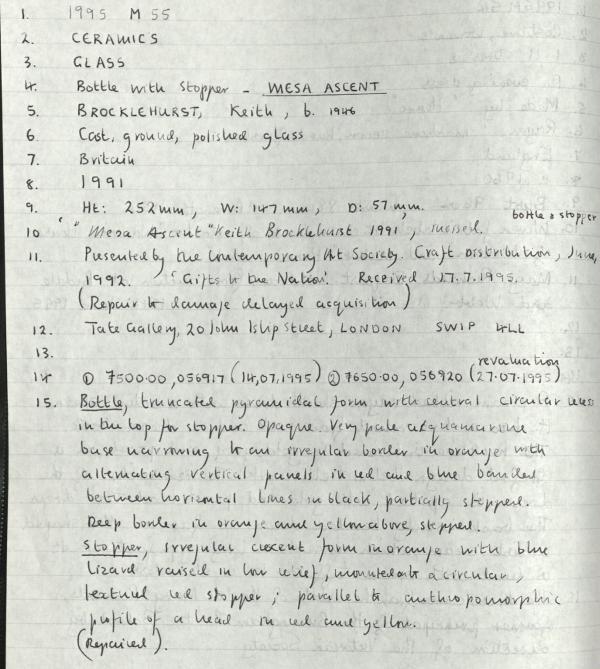 1. 1995 M 55
2. CERAMICS
3. GLASS
4. Bottle with Stopper - MESA ASCENT
5. BROCKLEHURST, Keith, b. 1946
6 Cast, ground, polished glass
7. Britain
8. 1991
9. Ht: 252mm, W: 147mm, D: 57mm.
bottle & stopper
10 "Mesa Ascent" Keith Brocklehurst 1991, incised.
11. Presented by the Contemporary Art Society. Craft Distribution, June,
1992. 'Gifts to the Nation'. Received 17.7.1995.
(Repair to damage delayed acquisition)
12. Tate Gallery, 20 John Islip Street, LONDON SW1P 4LL
13.
revaluation
14 ① 7500.00, 056917 (14,07,1995) ② 7650.00, 056920 (27.07.1995)
15. Bottle, truncated pyramidal form with central circular
in the top for stopper. Opaque. Very pale acquamarine
base narrowing to an irregular border in orange with
alternating vertical panels in red and blue banded
between horizontal lines in black, partially stepped.
Deep border in orange and yellow above, stepped.
Stopper, irregular crescent form in orange with blue
lizard raised in low relief, mounted onto a circular,
textured red stopper; parallel to anthropomorphic
profile of a head in red and yellow.
(Repaired).